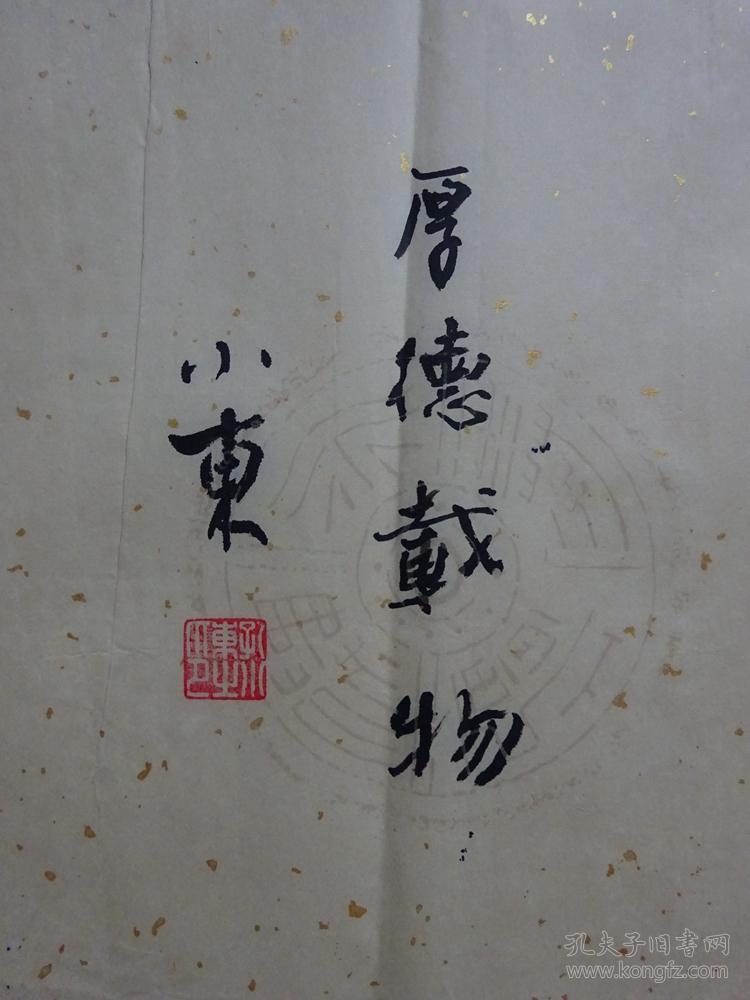 厚德載物
小東
孔夫子旧書网
www.kongfz.com